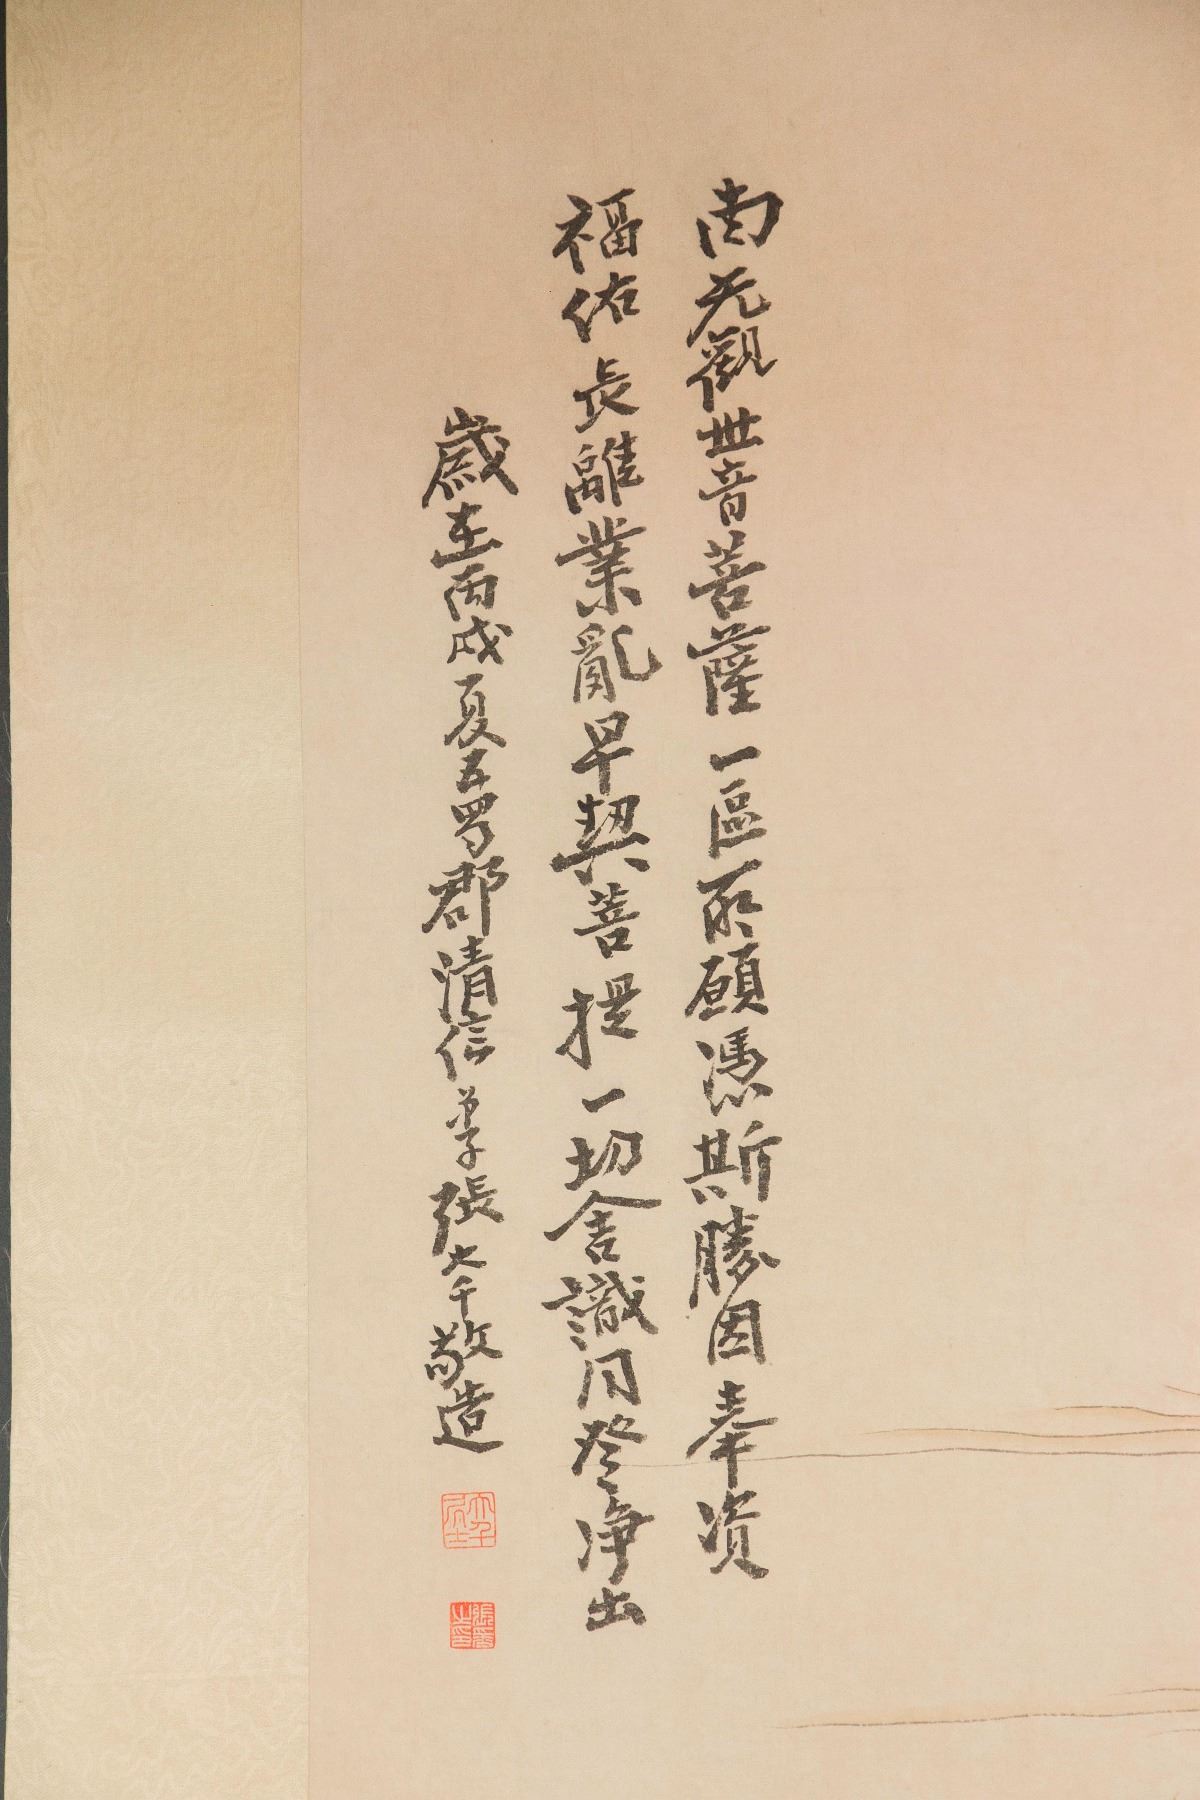 南无觀世音菩薩一區所願憑斯勝因奉資
福佑長離業亂早契菩提一切含識同登淨土
歲在丙戌夏五蜀郡清信弟子張大千敬造
大千居士
張爰之印